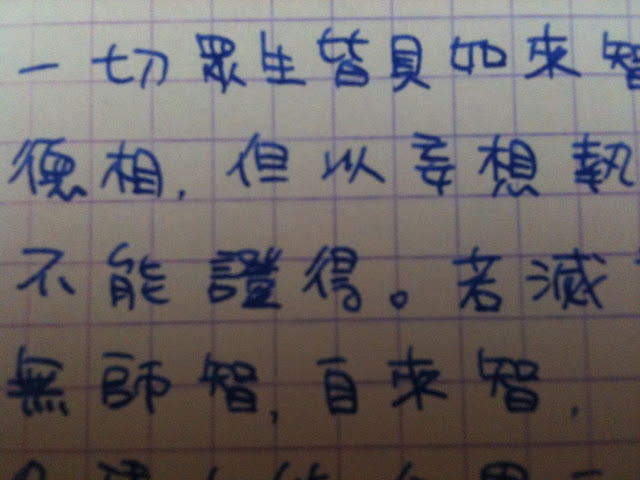 一切眾生皆具如來智
德相，但以妄想執
不能證得。若滅
無師智，自來智，